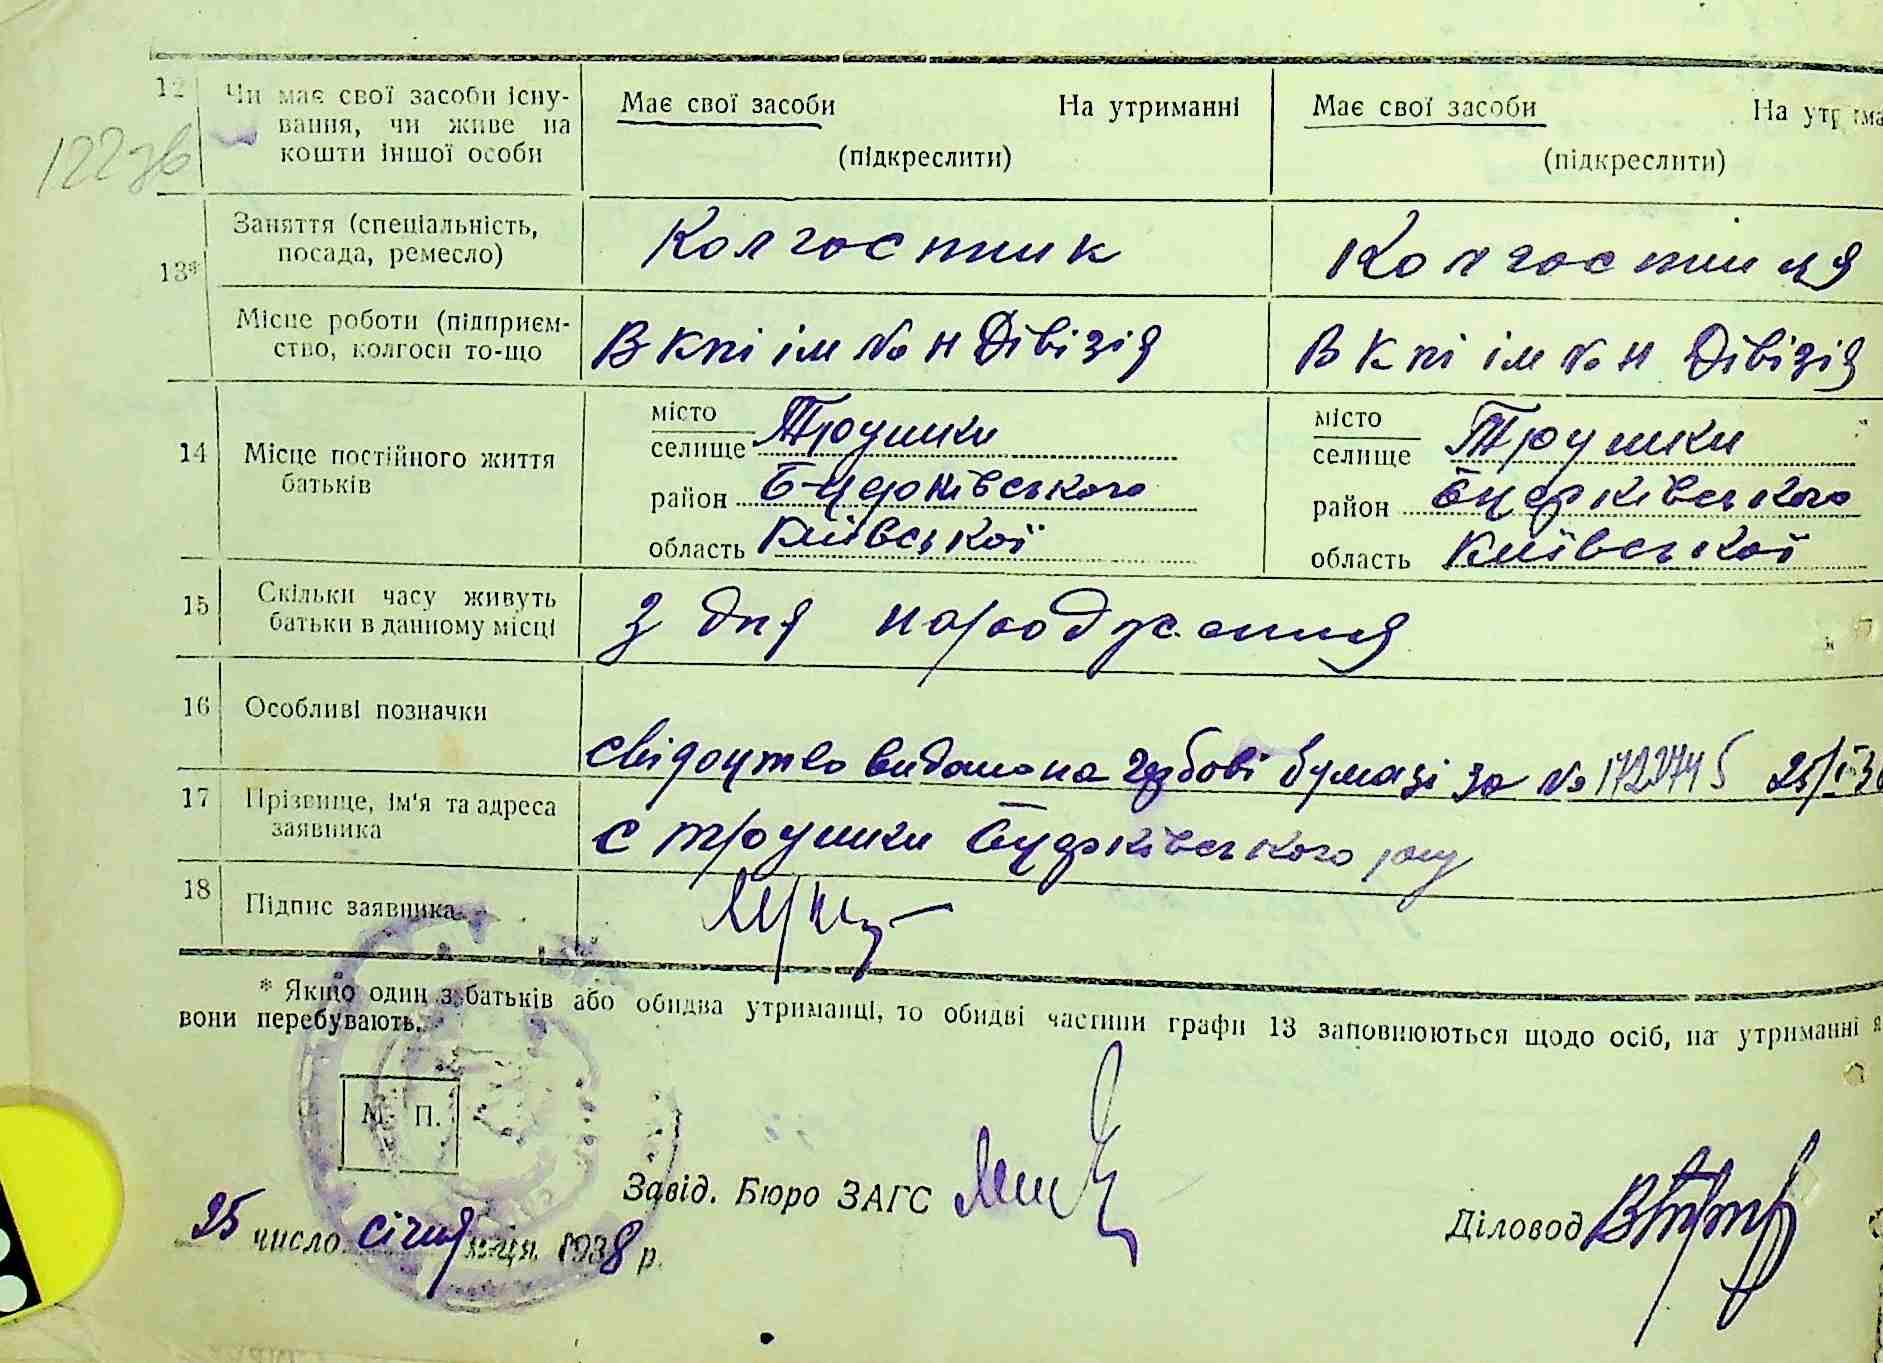 12 Чи має свої засоби існу-
вання, чи живе на
кошти іншої особи
Має свої засоби На утриманні
(підкреслити)
Має свої засоби На утрима
(підкреслити)
122
13* Заняття (спеціальність,
посада, ремесло)
Колгоспник
Колгоспниця
Місце роботи (підприєм-
ство, колгосп то-що
В К-пі ім № Н Дівізія
В К-пі ім № Н Дівізія
14 Місце постійного життя
батьків
місто
селище Трушки
район Б-Церківського
область Київської
місто
селище Трушки
район Бцерківського
область Київської
15 Скільки часу живуть
батьки в данному місці
З дня народження
16 Особливі позначки
свідоцтво видано на бумазі за № 1722745 25/I 38
17 Прізвище, ім'я та адреса
заявника
с Трушки Бцерківського р-ну
18 Підпис заявника
* Якщо один з батьків або обидва утриманці, то обидві частини графи 13 заповнюються щодо осіб, на утриманні я
вони перебувають.
М. П.
Завід. Бюро ЗАГС
Діловод
25 число січня м-ця 1938 р.